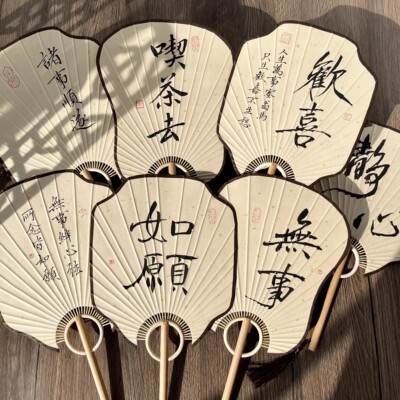 諸事順遂
喫茶去
歡喜
人生萬事塞翁馬
只生歡喜不生愁
靜心
無事絆心弦
所念皆如願
如願
無事